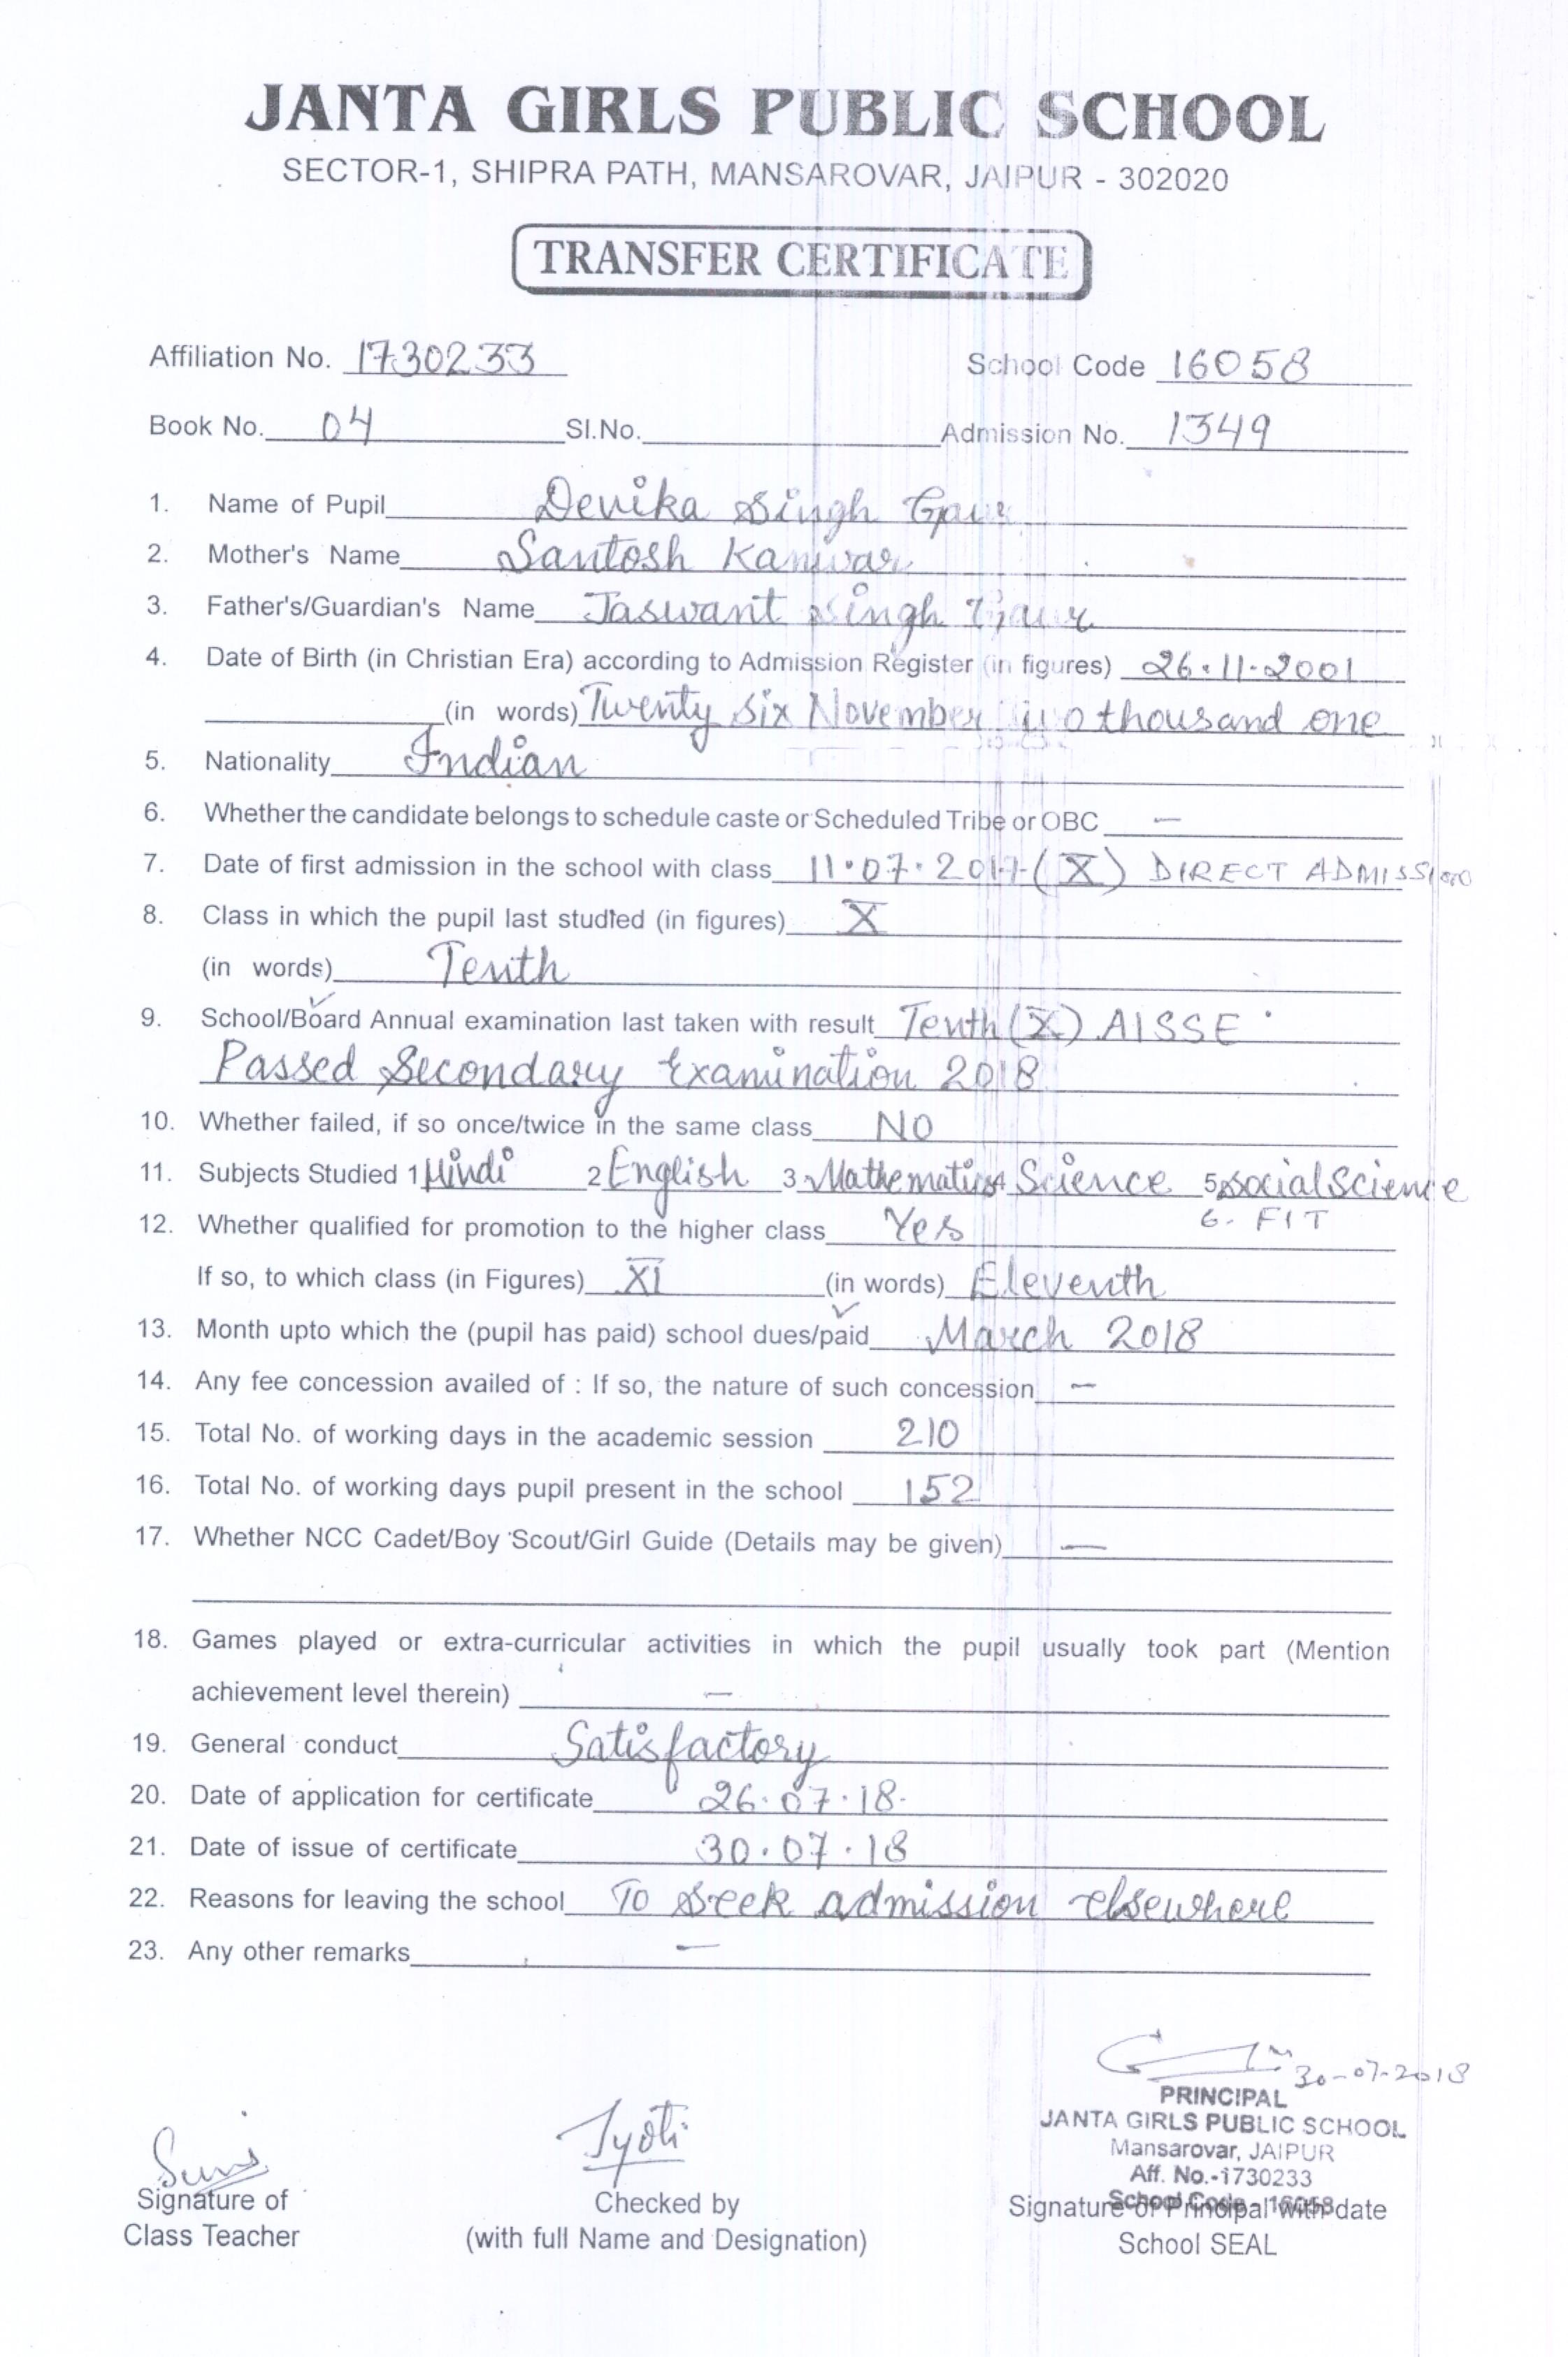 JANTA GIRLS PUBLIC SCHOOL
SECTOR-1, SHIPRA PATH, MANSAROVAR, JAIPUR - 302020
TRANSFER CERTIFICATE
Affiliation No. 1730233 School Code 16058
Book No. 04 Sl.No. Admission No. 1349
1. Name of Pupil Devika Singh Gaur
2. Mother's Name Santosh Kanwar
3. Father's/Guardian's Name Jaswant Singh Gaur
4. Date of Birth (in Christian Era) according to Admission Register (in figures) 26.11.2001
(in words) Twenty six November two thousand one
5. Nationality Indian
6. Whether the candidate belongs to schedule caste or Scheduled Tribe or OBC —
7. Date of first admission in the school with class 11.07.2017 (X) DIRECT ADMISSION
8. Class in which the pupil last studied (in figures) X
(in words) Tenth
9. School/Board Annual examination last taken with result Tenth (X) AISSE
Passed Secondary Examination 2018
10. Whether failed, if so once/twice in the same class NO
11. Subjects Studied 1 Hindi 2 English 3 Mathematics 4 Science 5 Social Science
6. FIT
12. Whether qualified for promotion to the higher class Yes
If so, to which class (in Figures) XI (in words) Eleventh
13. Month upto which the (pupil has paid) school dues/paid March 2018
14. Any fee concession availed of : If so, the nature of such concession —
15. Total No. of working days in the academic session 210
16. Total No. of working days pupil present in the school 152
17. Whether NCC Cadet/Boy Scout/Girl Guide (Details may be given) —
18. Games played or extra-curricular activities in which the pupil usually took part (Mention
achievement level therein) —
19. General conduct Satisfactory
20. Date of application for certificate 26.07.18.
21. Date of issue of certificate 30.07.18
22. Reasons for leaving the school To seek admission elsewhere
23. Any other remarks —
30-07-2018
PRINCIPAL
JANTA GIRLS PUBLIC SCHOOL
Mansarovar, JAIPUR
Aff. No.-1730233
School Code - 16058
Jyoti
Signature of Checked by Signature of Principal with date
Class Teacher (with full Name and Designation) School SEAL